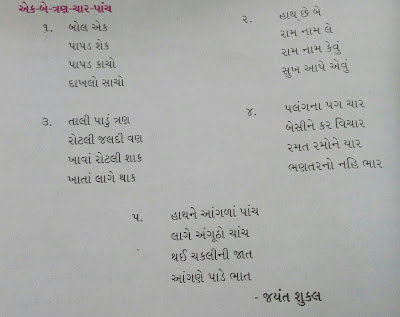 એક-બે-ત્રણ-ચાર-પાંચ
૧. બોલ એક
પાપડ શેક
પાપડ કાચો
દાખલો સાચો
૨. હાથ છે બે
રામ નામ લે
રામ નામ કેવું
સુખ આપે એવું
૩. તાલી પાડું ત્રણ
રોટલી જલદી વણ
ખાવાં રોટલી શાક
ખાતાં લાગે થાક
૪. પલંગના પગ ચાર
બેસીને કર વિચાર
રમત રમોને યાર
ભણતરનો નહિ ભાર
૫. હાથને આંગળાં પાંચ
લાગે અંગૂઠો ચાંચ
થઈ ચકલીની જાત
આંગણે પાડે ભાત
- જયંત શુક્લ